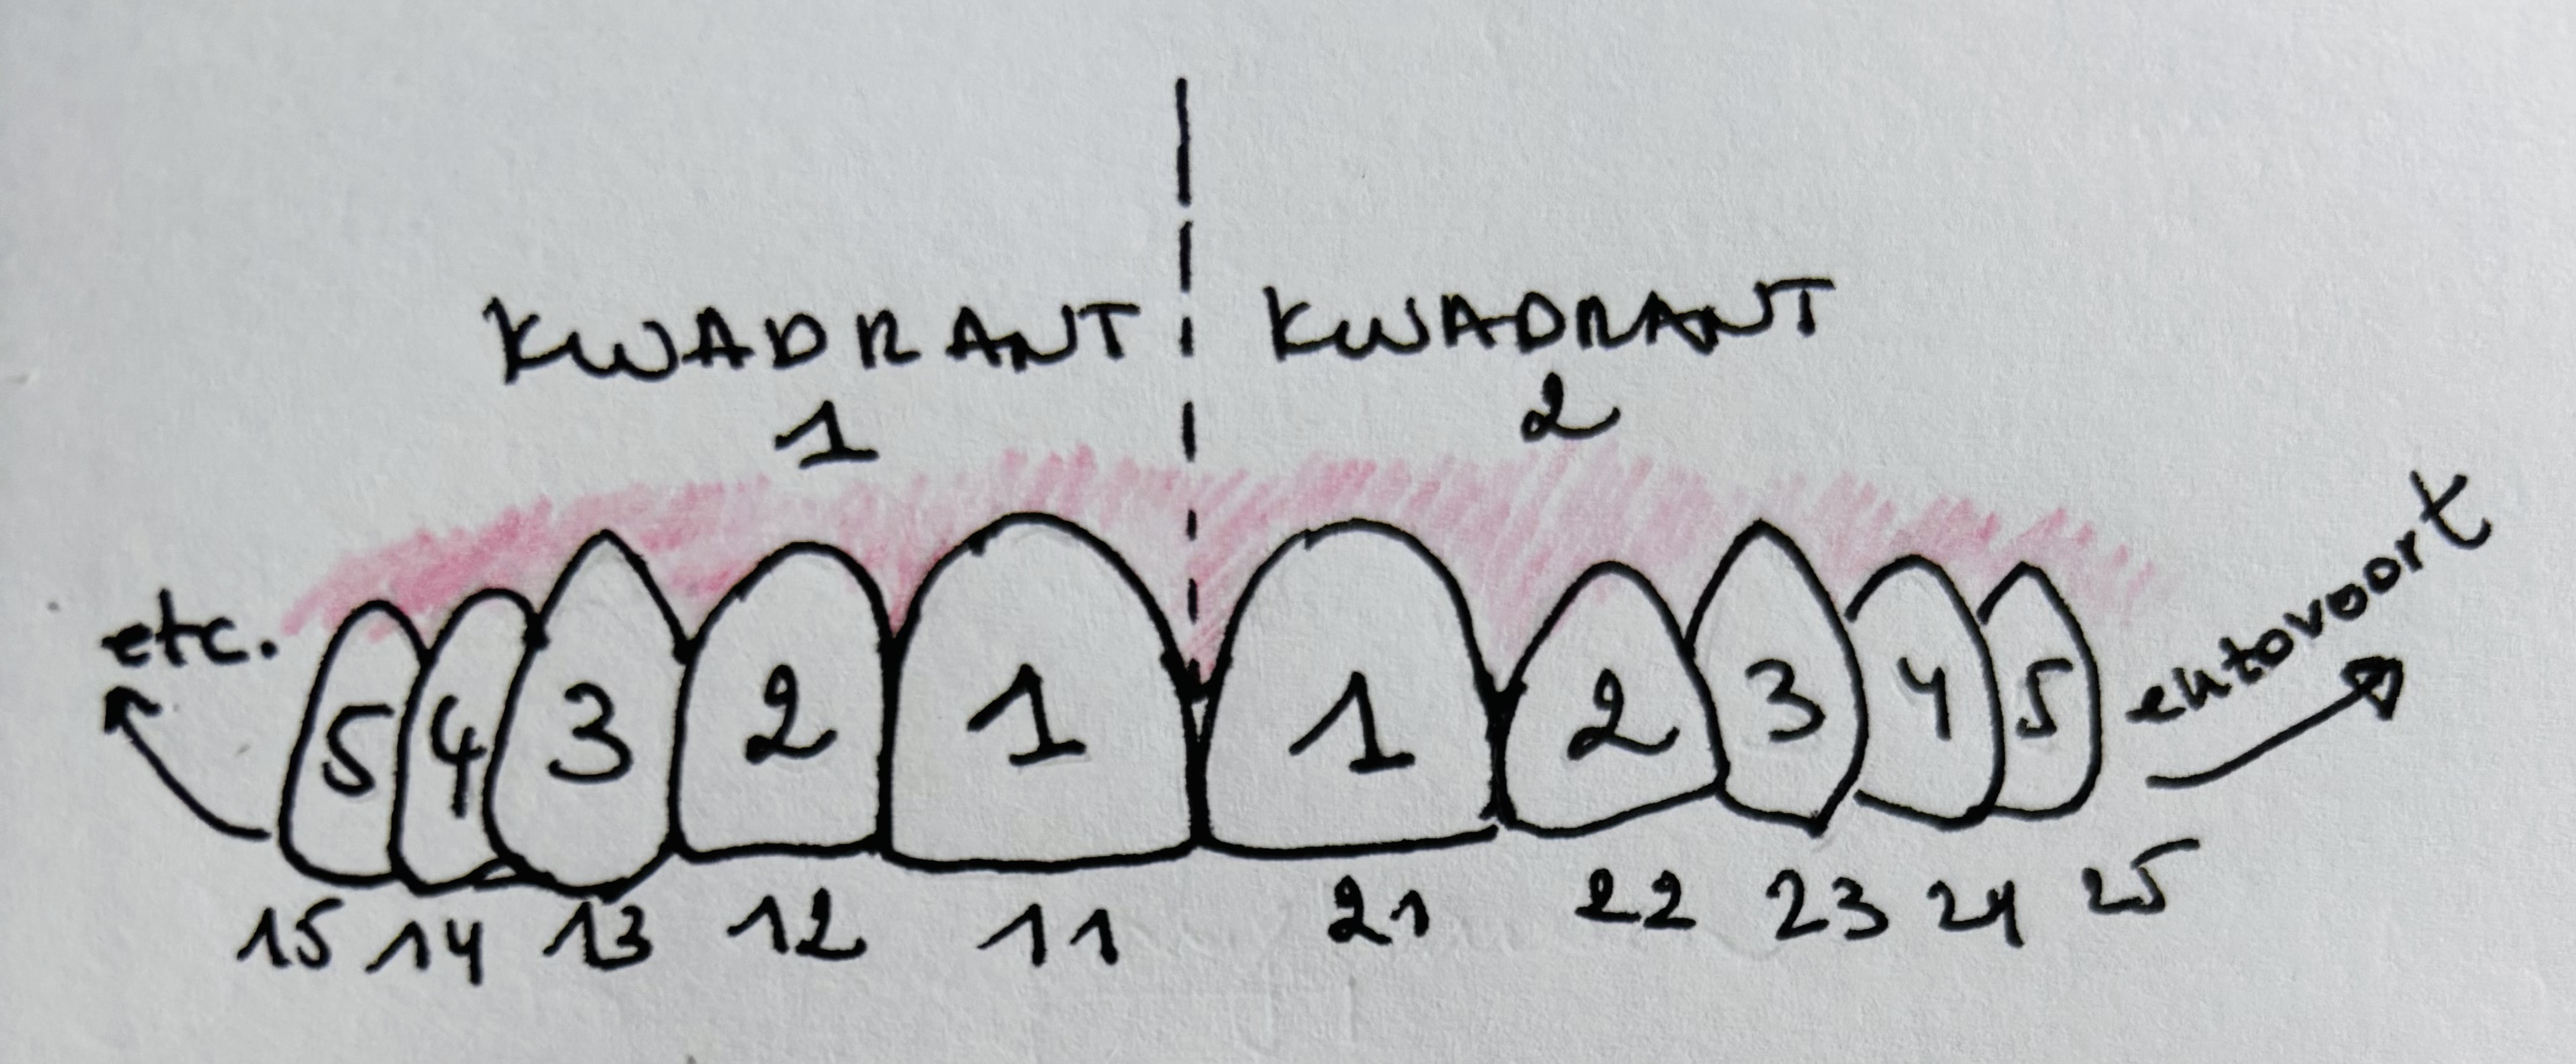 KWADRANT KWADRANT
1 2
etc. 5 4 3 2 1 1 2 3 4 5 enzovoort
15 14 13 12 11 21 22 23 24 25